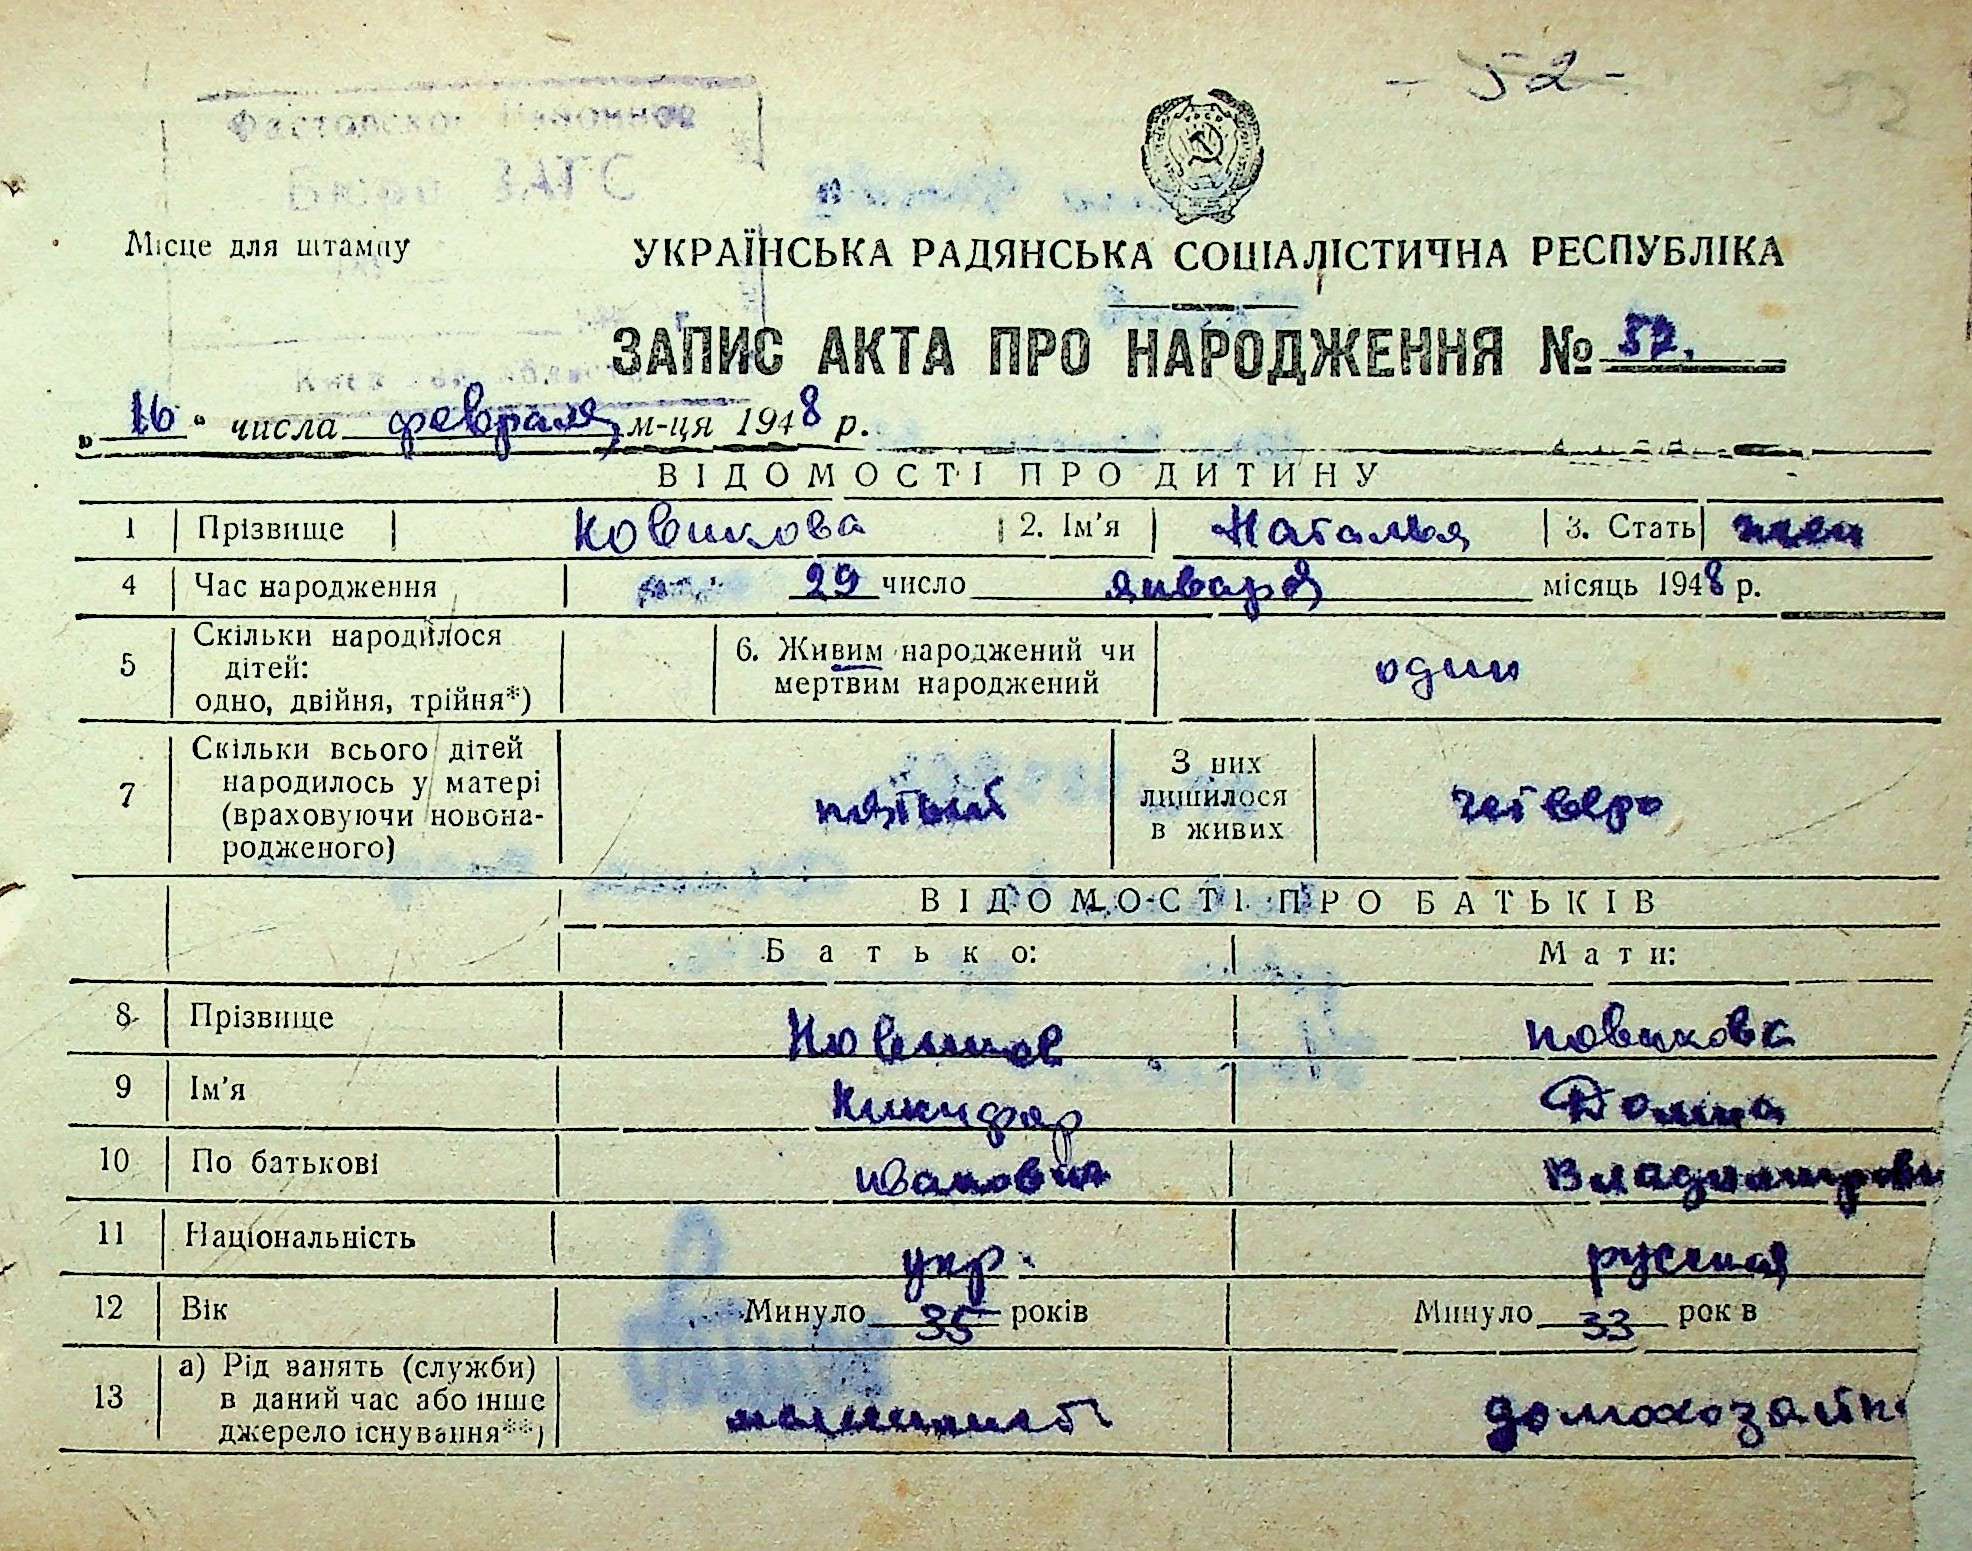 - 52 -
52
Районное
Бюро ЗАГС
Місце для штампу
УКРАЇНСЬКА РАДЯНСЬКА СОЦІАЛІСТИЧНА РЕСПУБЛІКА
ЗАПИС АКТА ПРО НАРОДЖЕННЯ № 52.
„16“ числа февраля м-ця 1948 р.
ВІДОМОСТІ ПРО ДИТИНУ
1 Прізвище Новикова 2. Ім'я Наталья 3. Стать жен
4 Час народження 29 число января місяць 1948 р.
5 Скільки народилося дітей: одно, двійня, трійня*) 6. Живим народжений чи мертвим народжений один
7 Скільки всього дітей народилось у матері (враховуючи новонародженого) пятый З них лишилося в живих четверо
ВІДОМОСТІ ПРО БАТЬКІВ
Батько: Мати:
8 Прізвище Новиков Новикова
9 Ім'я Никифор Домна
10 По батькові Иванович Владимировн
11 Національність укр. русская
12 Вік Минуло 35 років Минуло 33 рок в
13 а) Рід занять (служби) в даний час або інше джерело існування**) машинист домохозяйк